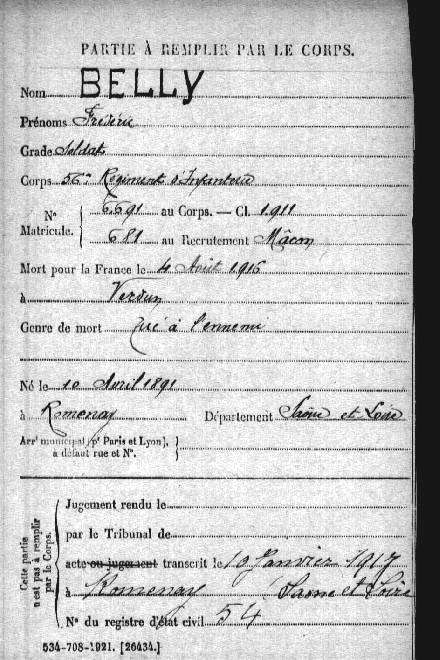 PARTIE À REMPLIR PAR LE CORPS.
Nom BELLY
Prénoms Fréderic
Grade Soldat
Corps 56me Régiment d'Infanterie
N° Matricule. 6691 au Corps. — Cl. 1911
681 au Recrutement Mâcon
Mort pour la France le 4 Août 1916
à Verdun
Genre de mort Tué à l'ennemi
Né le 10 Avril 1891
à Romenay Département Saône et Loire
Arrt municipal (pr Paris et Lyon),
à défaut rue et N°.
Cette partie n'est pas à remplir par le Corps.
Jugement rendu le
par le Tribunal de
acte ou jugement transcrit le 19 Janvier 1917
à Romenay Saone et Loire
N° du registre d'état civil 54
534-708-1921. [26434.]